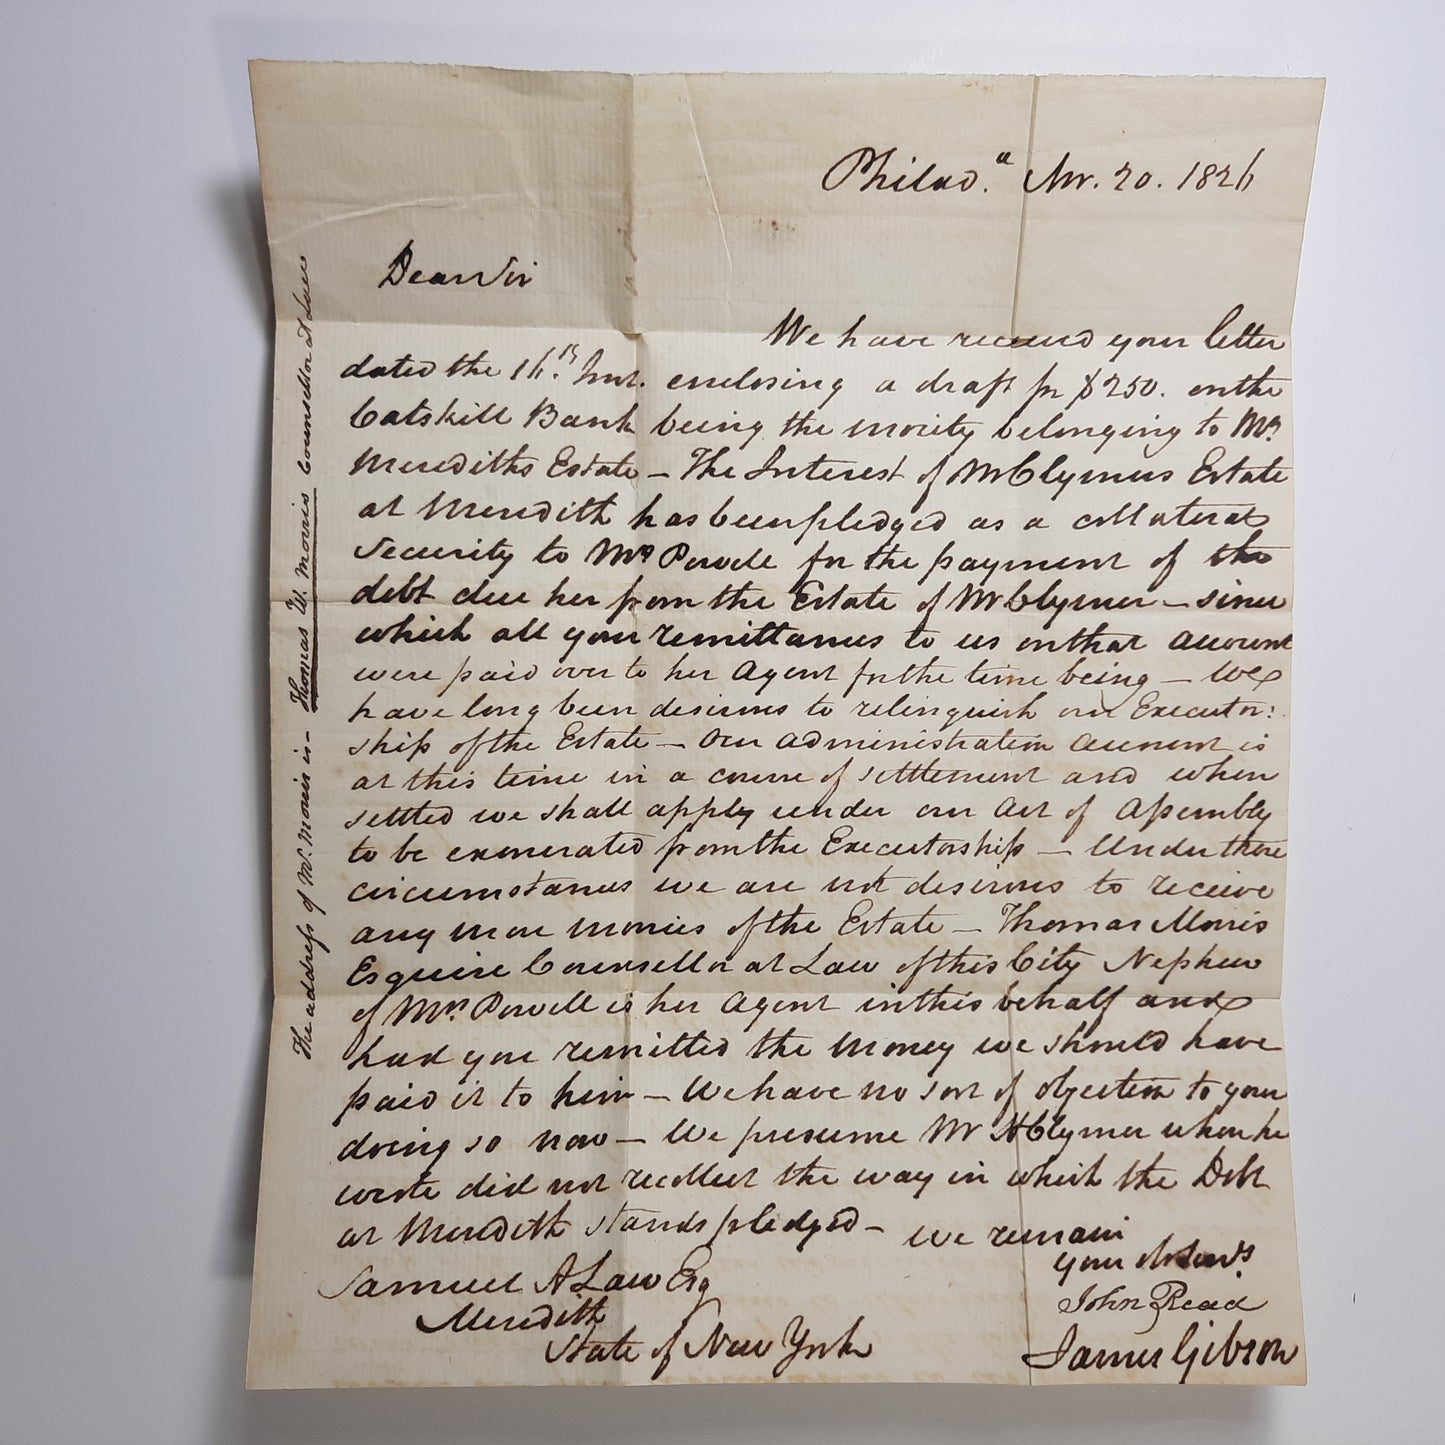 Philad.a Nov. 20. 1826
Dear Sir
We have received your letter
dated the 16.th Inst. enclosing a draft for $250. on the
Catskill Bank being the moiety belonging to Mr
Merediths Estate — The Interest of Mr Clymers Estate
at Meredith has been pledged as a collateral
security to Mrs Powell for the payment of the
debt due her from the Estate of Mr Clymer — since
which all your remittances to us on that account
were paid over to her Agent for the time being — We
have long been desirous to relinquish our Executor:
ship of the Estate — Our administration account is
at this time in a course of settlement and when
settled we shall apply under our Act of Assembly
to be exonerated from the Executorship — Under these
circumstances we are not desirous to receive
any more monies of the Estate — Thomas Morris
Esquire Counsellor at Law of this City Nephew
of Mrs Powell is her Agent in this behalf and
had you remitted the money we should have
paid it to him — We have no sort of objection to your
doing so now — We presume Mr H Clymer when he
wrote did not recollect the way in which the Debt
at Meredith stands pledged — We remain
your ob Servts
John Read
James Gibson
Samuel A Law Esq
Meredith
State of New York
The address of Mr. Morris is — Thomas W. Morris Counsellor at Law